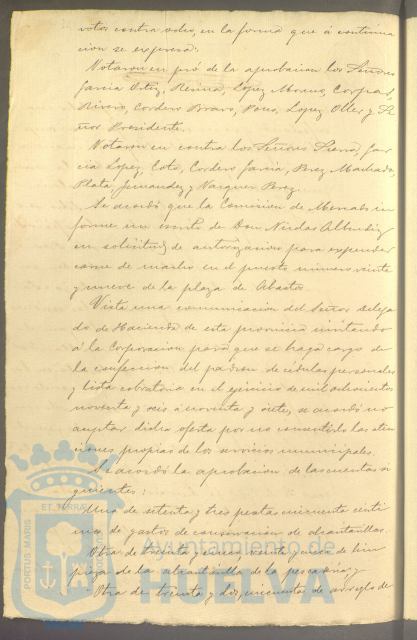 votos contra ocho, en la forma que á continua
cion se expresa:
Votaron en pró de la aprobacion los Señores
García Ortiz, Resina, López Moreno,
Rivero, Cordero Bravo, Lopez Oller y Se
ñor Presidente.
Votaron en contra los Señores Sierra, Gar
cía Lopez, Coto, Cordero García, Perez Machado,
Plata, Fernandez y Vazquez Perez.
Se acordó que la Comision de Mercados in
forme un escrito de Don Nicolas
en solicitud de autorizacion para expender
carne de macho en el puesto número veinte
y nueve de la plaza de Abastos.
Vista una comunicacion del Señor Delega
do de Hacienda de esta provincia invitando
á la Corporacion para que se haga cargo de
la confeccion del padron de cédulas personales
y lista cobratoria en el ejercicio de mil ochocientos
noventa y seis á noventa y siete, se acordó no
aceptar dicha oferta por no consentirlo las aten
ciones propias de los servicios municipales.
Se acordó la aprobacion de las cuentas si
guientes:
Una de setenta y tres pesetas cincuenta cénti
mos de gastos de conservacion de alcantarillas.
Otra de treinta y cinco veinte y cinco de lim
pieza de la alcantarilla de la pescadería y
Otra de treinta y dos, cincuenta de arreglo de
PORTUS MARIS ET TERRAE
Ayuntamiento de
HUELVA